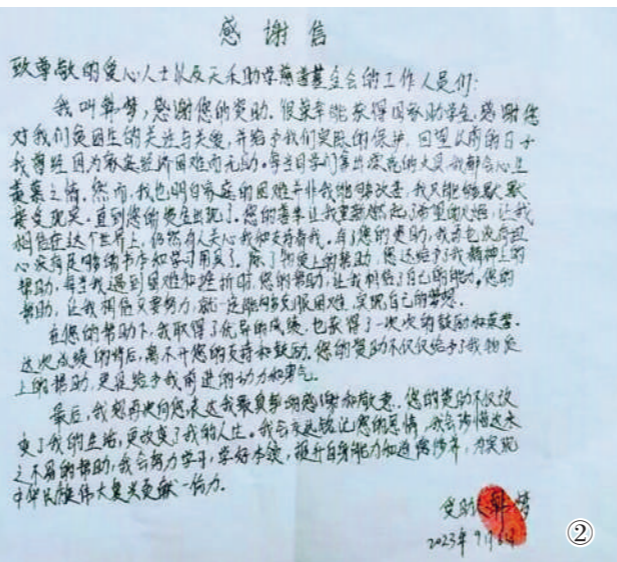 感谢信
致尊敬的爱心人士以及天禾助学慈善基金会的工作人员们:
我叫韩梦,感谢您的资助。很荣幸能获得国家助学金,感谢您
对我们贫困生的关注与关爱,并给予我们实际的保护,回望以前的日子
我曾经因为家庭经济困难而无助。每当同学们拿出漂亮的文具,我都会心生
羡慕之情。然而,我也明白家庭的困难并非我能够改变,我只能够默默
接受现实。直到您的资金出现了。您的善举让我重新燃起了希望的火焰,让我
相信在这个世界上,仍然有人关心我和支持着我。有了您的资助,我再也没有担
心家有足够的书本和学习用具了。除了物质上的帮助,您还给予了我精神上的
帮助,每当我遇到困难和挫折时,您的帮助,让我相信了自己的能力。您的
帮助,让我相信只要努力,就一定能够克服困难,实现自己的梦想。
在您的帮助下,我取得了优异的成绩,也获得了一次次的鼓励和荣誉。
这次成绩的背后,离不开您的支持和鼓励。您的资助不仅仅给予了我物质
上的帮助,更是给予我前进的动力和勇气。
最后,我想再次向您表达我最真挚的感谢和敬意。您的资助不仅改
变了我的生活,更改变了我的人生。我会永远铭记您的恩情,我会珍惜这来
之不易的帮助,我会努力学习,学好本领,提升自身能力和道德修养,为实现
中华民族伟大复兴贡献一份力。
受助人:韩梦
2023年9月
②